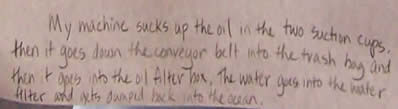 My machine sucks up the oil in the two suction cups,
then it goes down the conveyor belt into the trash bag and
then it goes into the oil filter box. The water goes into the water
filter and gets dumped back into the ocean.